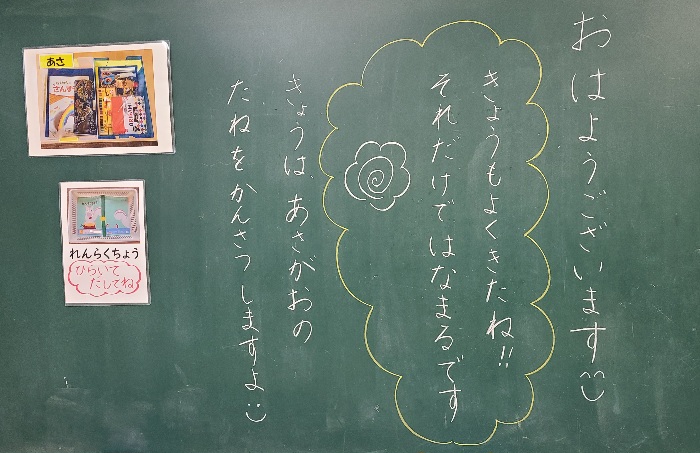 おはようございます
きょうもよくきたね!!
それだけではなまるです
きょうは、あさがおの
たねをかんさつしますよ
あさ
さんすう
れんらくちょう
ひらいて
だしてね